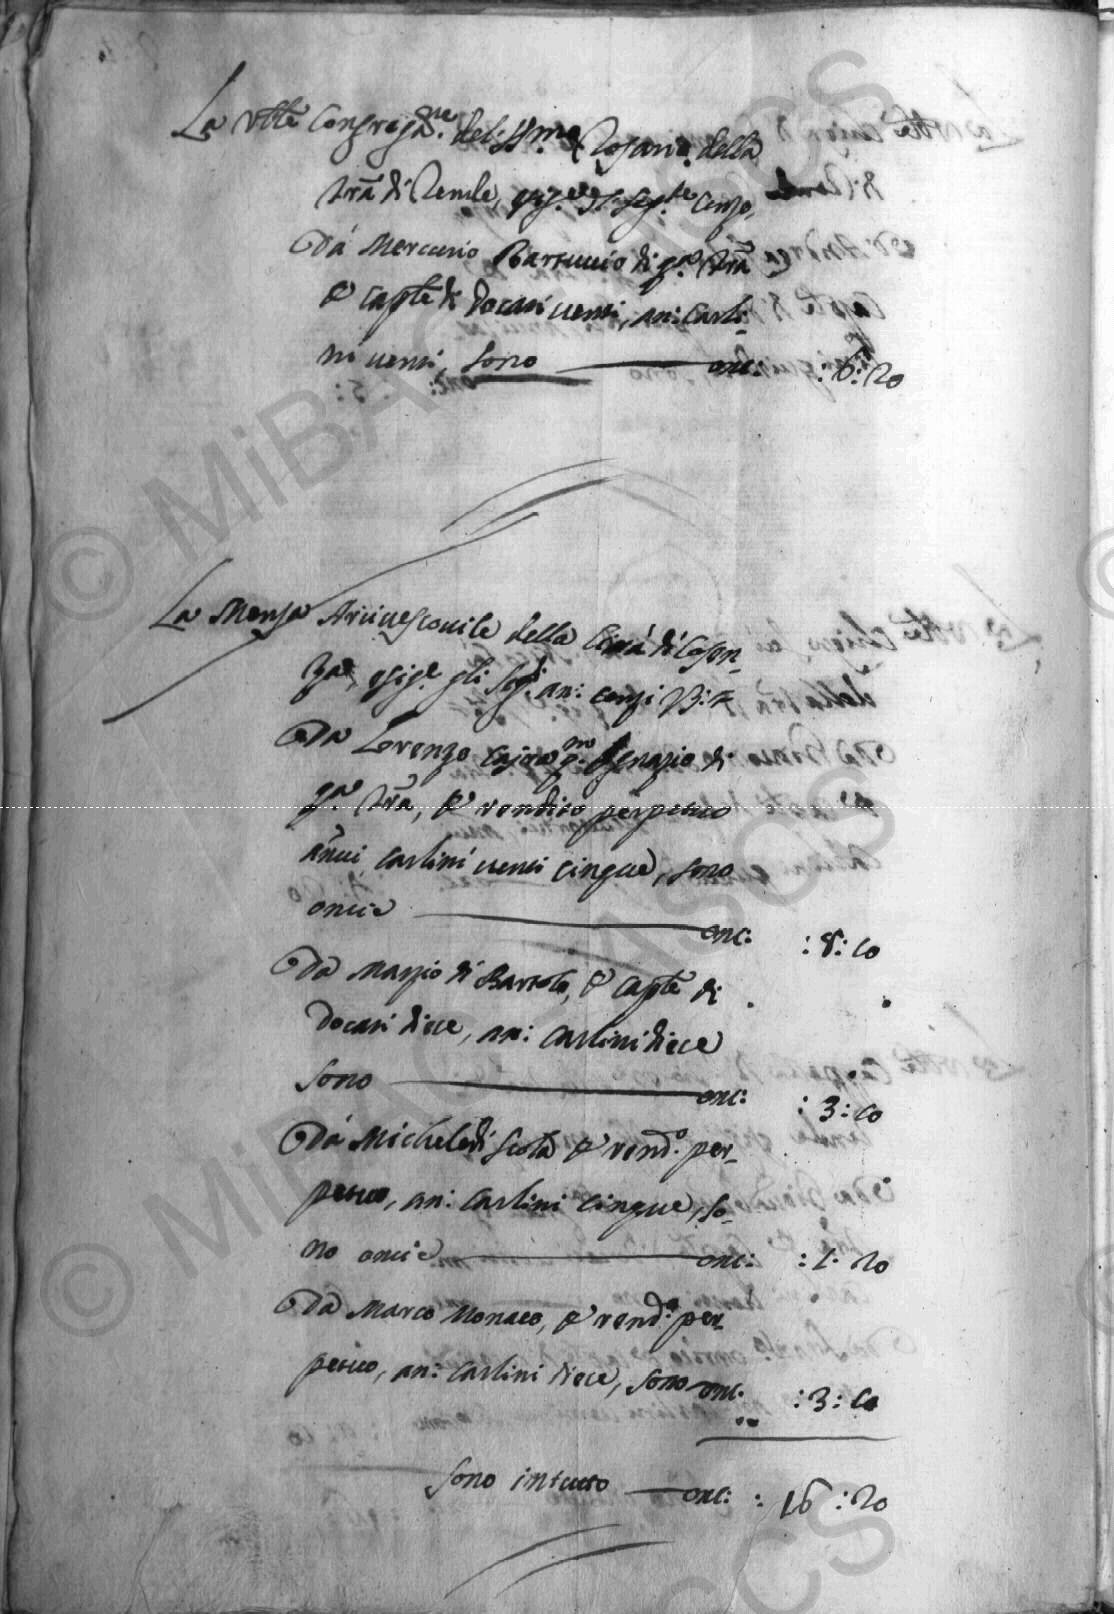 La Vble Congregane: del SSmo Rosario della
Trã di Rende, esige il segte Cenzo,
Da Mercurio Bartuccio di qa Trã
P Caple di docati venti, an: Carli-
ni venti, sono onc: : 6: 20
La Mensa Arcivescovile della Città di Cosen-
za, esige gli segti an: cenzi
Da Lorenzo qm Ignazio di
qa Trã, P rendito perpetuo
annui carlini venti cinque, sono
oncie onc: : 8: 10
Da Marzio di Bartolo, P Caple di
Docati diece, an: Carlini diece
sono onc: : 3: 10
Da Michele di Scola P rendo: per-
petuo, an: Carlini cinque, so-
no oncie onc: : 1: 20
Da Marco Monaco, P rendo: per-
petuo, an: Carlini diece, sono onc: : 3: 10
Sono in tutto onc: : 16: 20
© MiBAC ASCS
© MiBAC ASCS